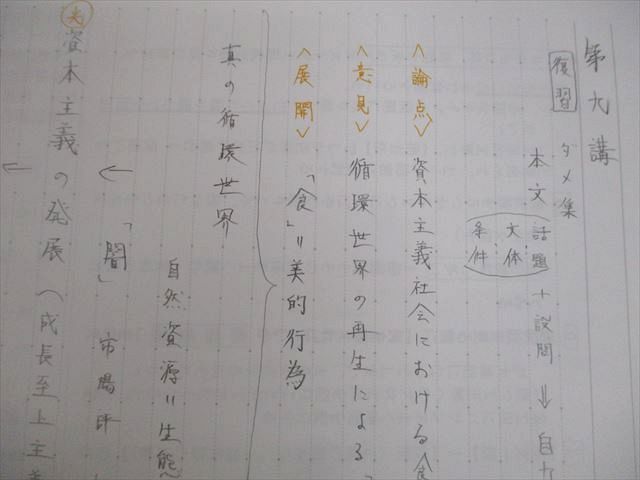 第九講
復習 ダメ集
本文 話題 + 設問 ⇓ 自
大体
条件
〈論点〉 資本主義社会における食
〈意見〉 循環世界の再生による
〈展開〉 「食」=美的行為
真の循環世界
自然資源=生態
← 「闇」 市場
資本主義の発展(成長至上主義
←